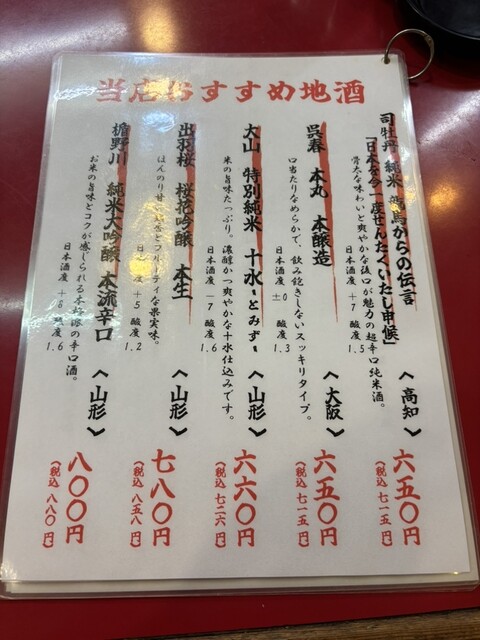 当店おすすめ地酒
司牡丹 純米 龍馬からの伝言
「日本を今一度せんたくいたし申候」
骨太な味わいと爽やかな後口が魅力の超辛口純米酒。
日本酒度 +7 酸度 1.5
〈高知〉
六五〇円
(税込 七一五円)
呉春 本丸 本醸造
口当たりなめらかで、飲み飽きしないスッキリタイプ。
日本酒度 ±0 酸度 1.3
〈大阪〉
六五〇円
(税込 七一五円)
大山 特別純米 十水~とみず~
米の旨味たっぷり。濃醇かつ爽やかな十水仕込みです。
日本酒度 -7 酸度 1.6
〈山形〉
六六〇円
(税込 七二六円)
出羽桜 桜花吟醸 本生
ほんのり甘 とフルーティな果実味。
日本酒度 +5 酸度 1.2
〈山形〉
七八〇円
(税込 八五八円)
楯野川 純米大吟醸 本流辛口
お米の旨味とコクが感じられる本格派の辛口酒。
日本酒度 +8 酸度 1.6
〈山形〉
八〇〇円
(税込 八八〇円)